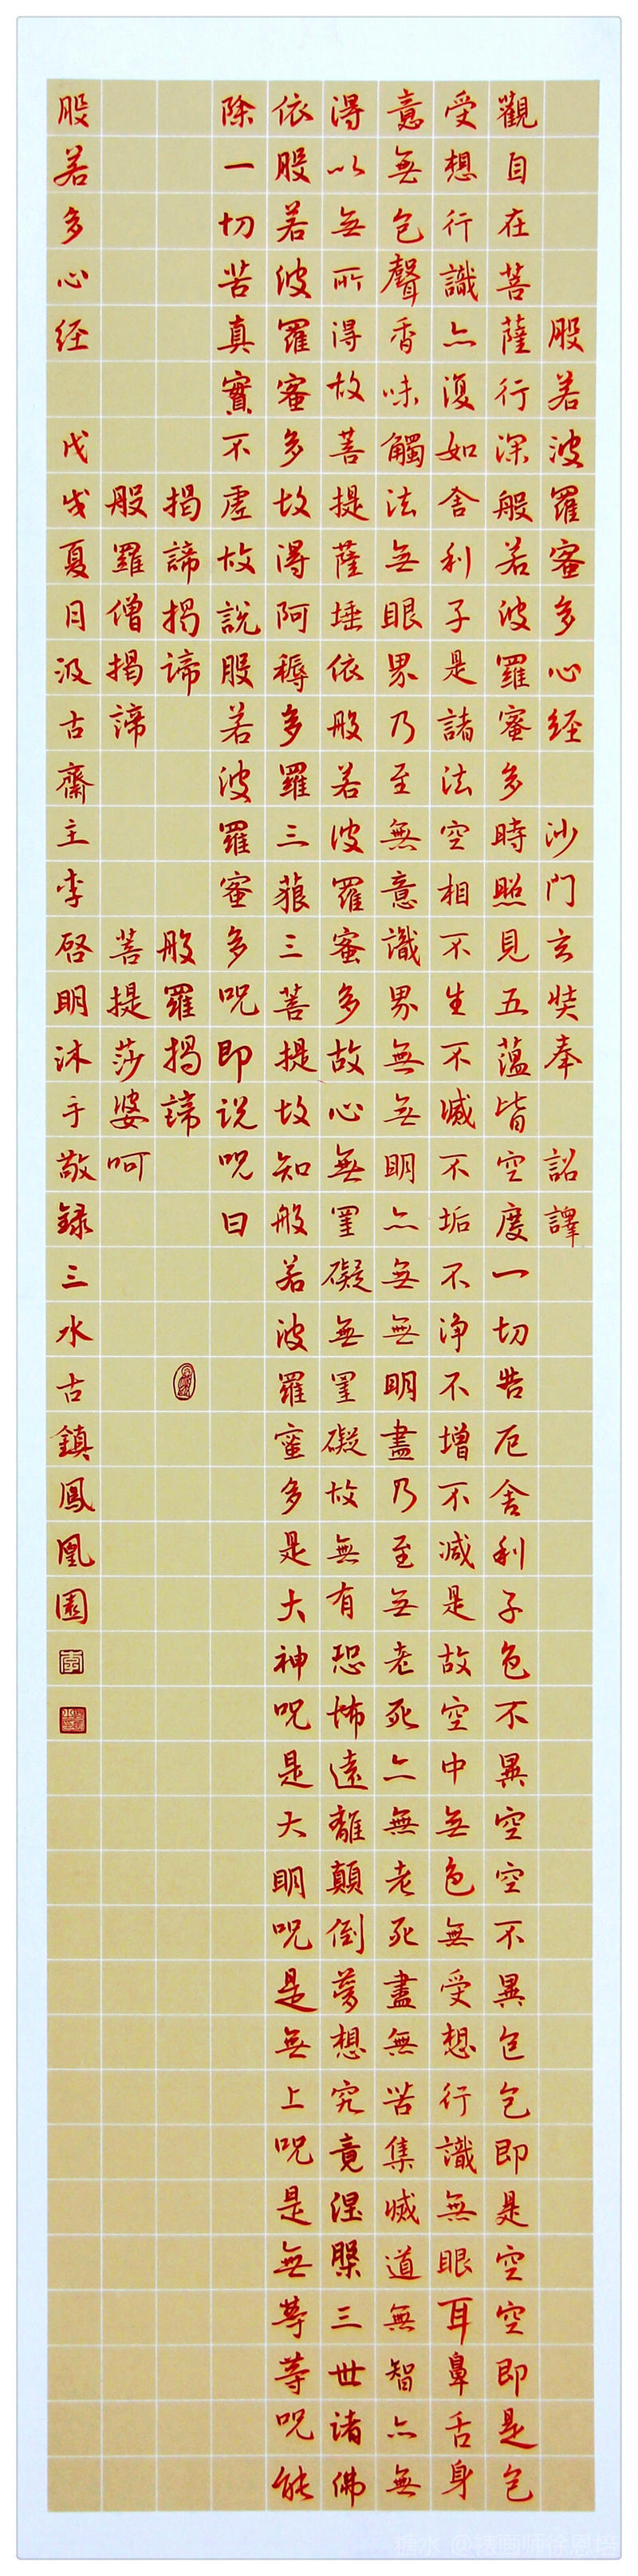 般若波羅蜜多心経 沙門玄奘奉 詔譯
觀自在菩薩行深般若波羅蜜多時照見五蘊皆空度一切苦厄舍利子色不異空空不異色色即是空空即是色
受想行識亦復如舍利子是諸法空相不生不滅不垢不淨不增不减是故空中無色無受想行識無眼耳鼻舌身
意無色聲香味觸法無眼界乃至無意識界無無明亦無無明盡乃至無老死亦無老死盡無苦集滅道無智亦無
得以無所得故菩提薩埵依般若波羅蜜多故心無罣礙無罣礙故無有恐怖遠離顛倒夢想究竟涅槃三世諸佛
依般若波羅蜜多故得阿耨多羅三藐三菩提故知般若波羅蜜多是大神呪是大明呪是無上呪是無等等呪能
除一切苦真實不虛故說般若波羅蜜多呪即说呪曰
揭諦揭諦 般羅揭諦
般羅僧揭諦 菩提莎婆呵
般若多心経 戊戌夏月汲古齋主李啓明沐手敬録三水古鎮鳳凰園
糖水 @裱画师徐恩